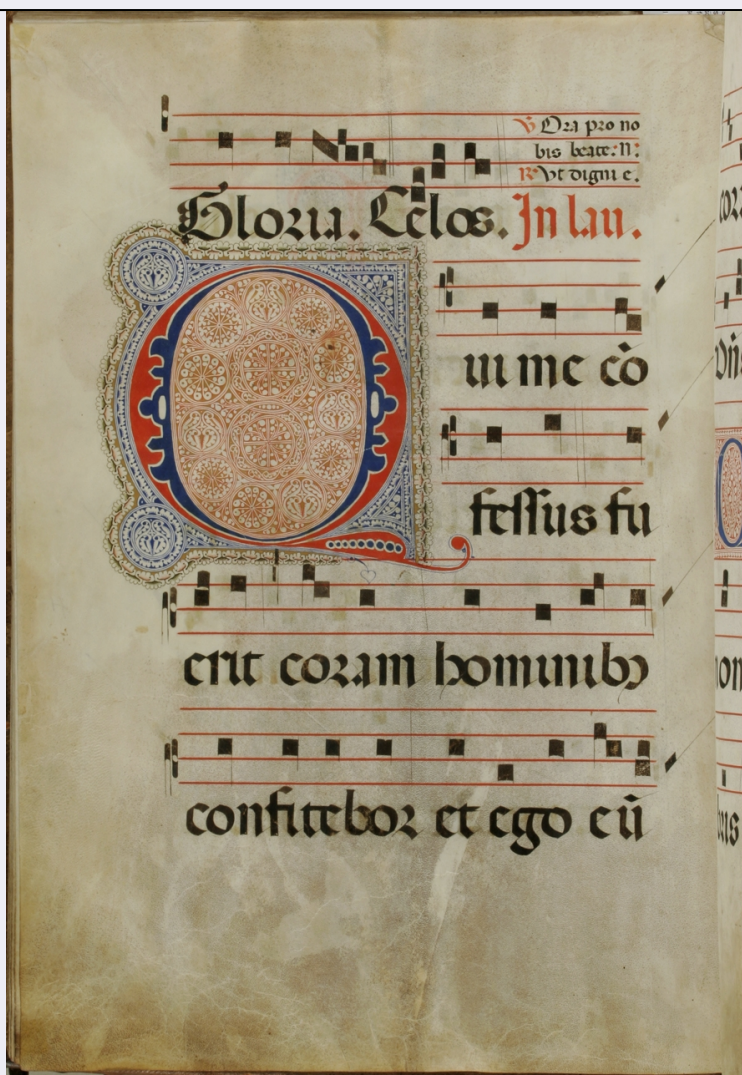 ℣ Ora pro no
bis beate: n:
℟ Vt digni e.
Gloria. Celos. In lau.
Qui me cō
fessus fu
erit coram hominibꝫ
confitebor et ego eū